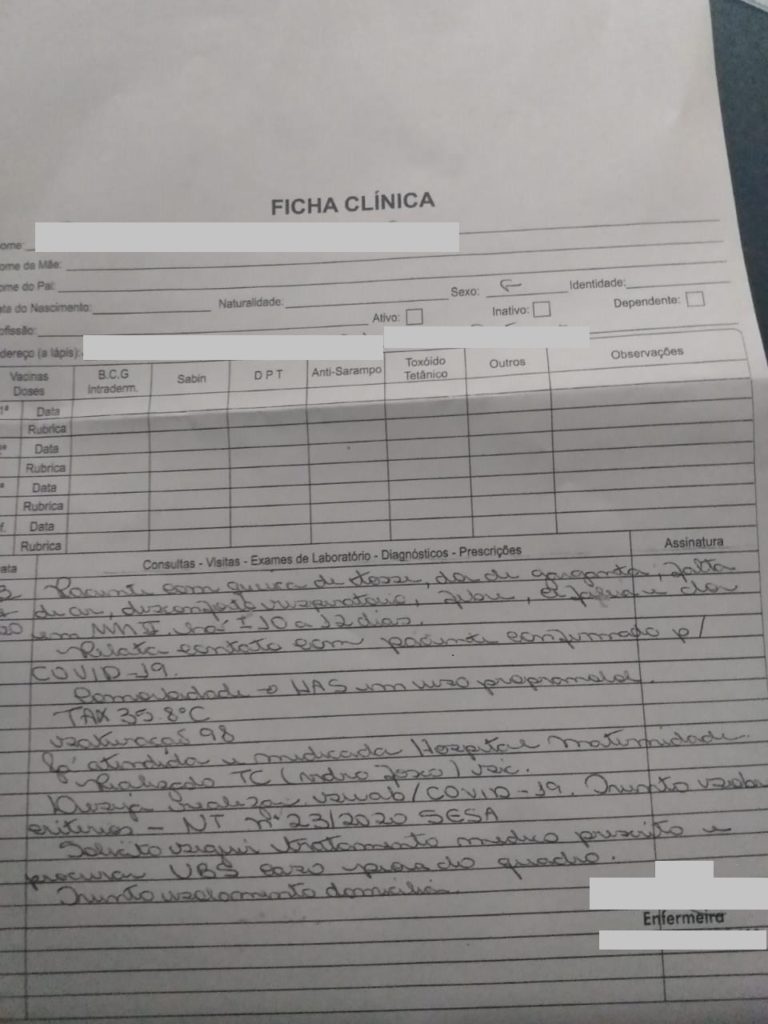 FICHA CLÍNICA
ome:
ome da Mãe:
ome do Pai:
Sexo: F Identidade:
ata do Nascimento: Naturalidade:
Ativo: Inativo: Dependente:
ofissão:
dereço (a lápis):
Vacinas Doses B.C.G Intraderm. Sabin D P T Anti-Sarampo Toxóido Tetânico Outros Observações
1ª Data
Rubrica
ª Data
Rubrica
ª Data
Rubrica
f. Data
Rubrica
ata Consultas - Visitas - Exames de Laboratório - Diagnósticos - Prescrições Assinatura
Paciente com queixa de tosse, dor de garganta, falta
de ar, desconforto respiratório, febre, e dor
20 em MMII há 10 a 12 dias.
Relata contato com paciente confirmado p/
COVID-19.
Comorbidade HAS em uso propranolol.
TAX 35.8°C
saturação 98
Já atendida e medicada Hospital maternidade.
Realizado TC (vidro fosco) sic.
Deseja realizar swab/COVID-19. Oriento sobre
critérios - NT nº 23/2020 SESA
Solicito seguir tratamento médico prescrito e
procurar UBS caso piora do quadro.
Oriento isolamento domiciliar.
Enfermeira